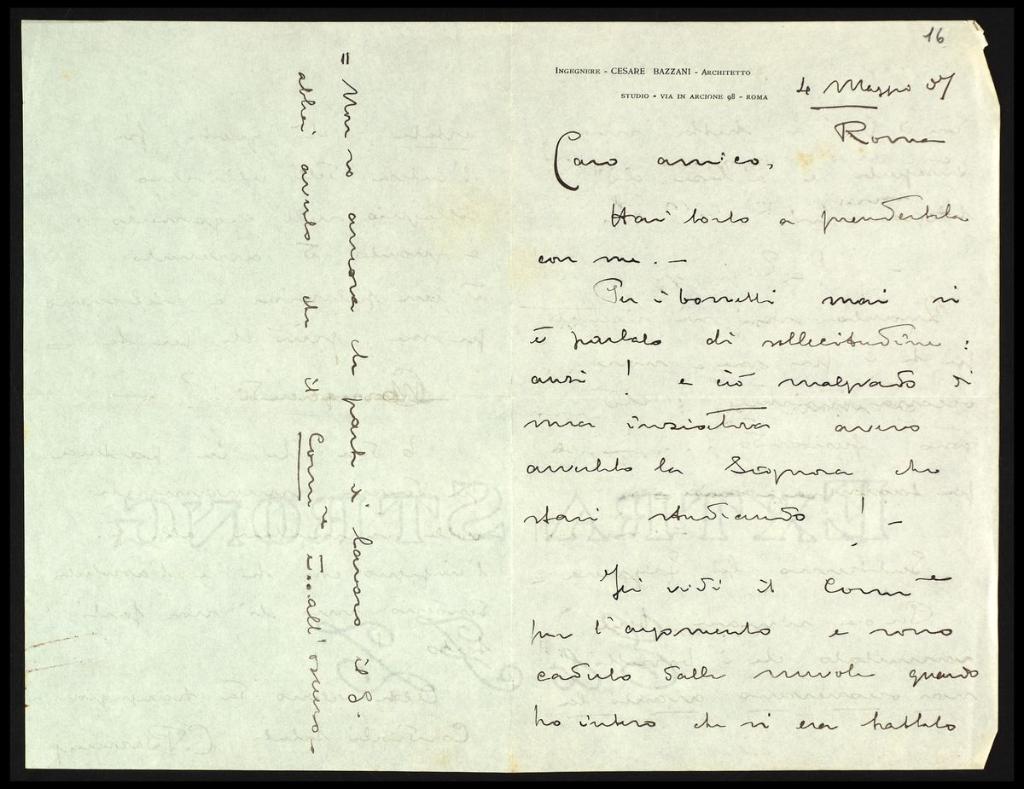 16
INGEGNERE - CESARE BAZZANI - ARCHITETTO
STUDIO - VIA IN ARCIONE 98 - ROMA
4 Maggio 07
Roma
Caro amico,
Hai torto a prendertela
con me. —
Per i bozzetti mai si
è parlato di sollecitudine:
anzi! e ciò malgrado di
mia iniziativa avevo
avvertito la Signora che
stai studiando! —
Ieri vidi il Comm.re
per l'argomento e sono
caduto dalle nuvole quando
ho inteso che si era trattato
= Non so ancora che parte di lavoro il S.
abbia avuto da il
Comm.re è.. all'oscuro —